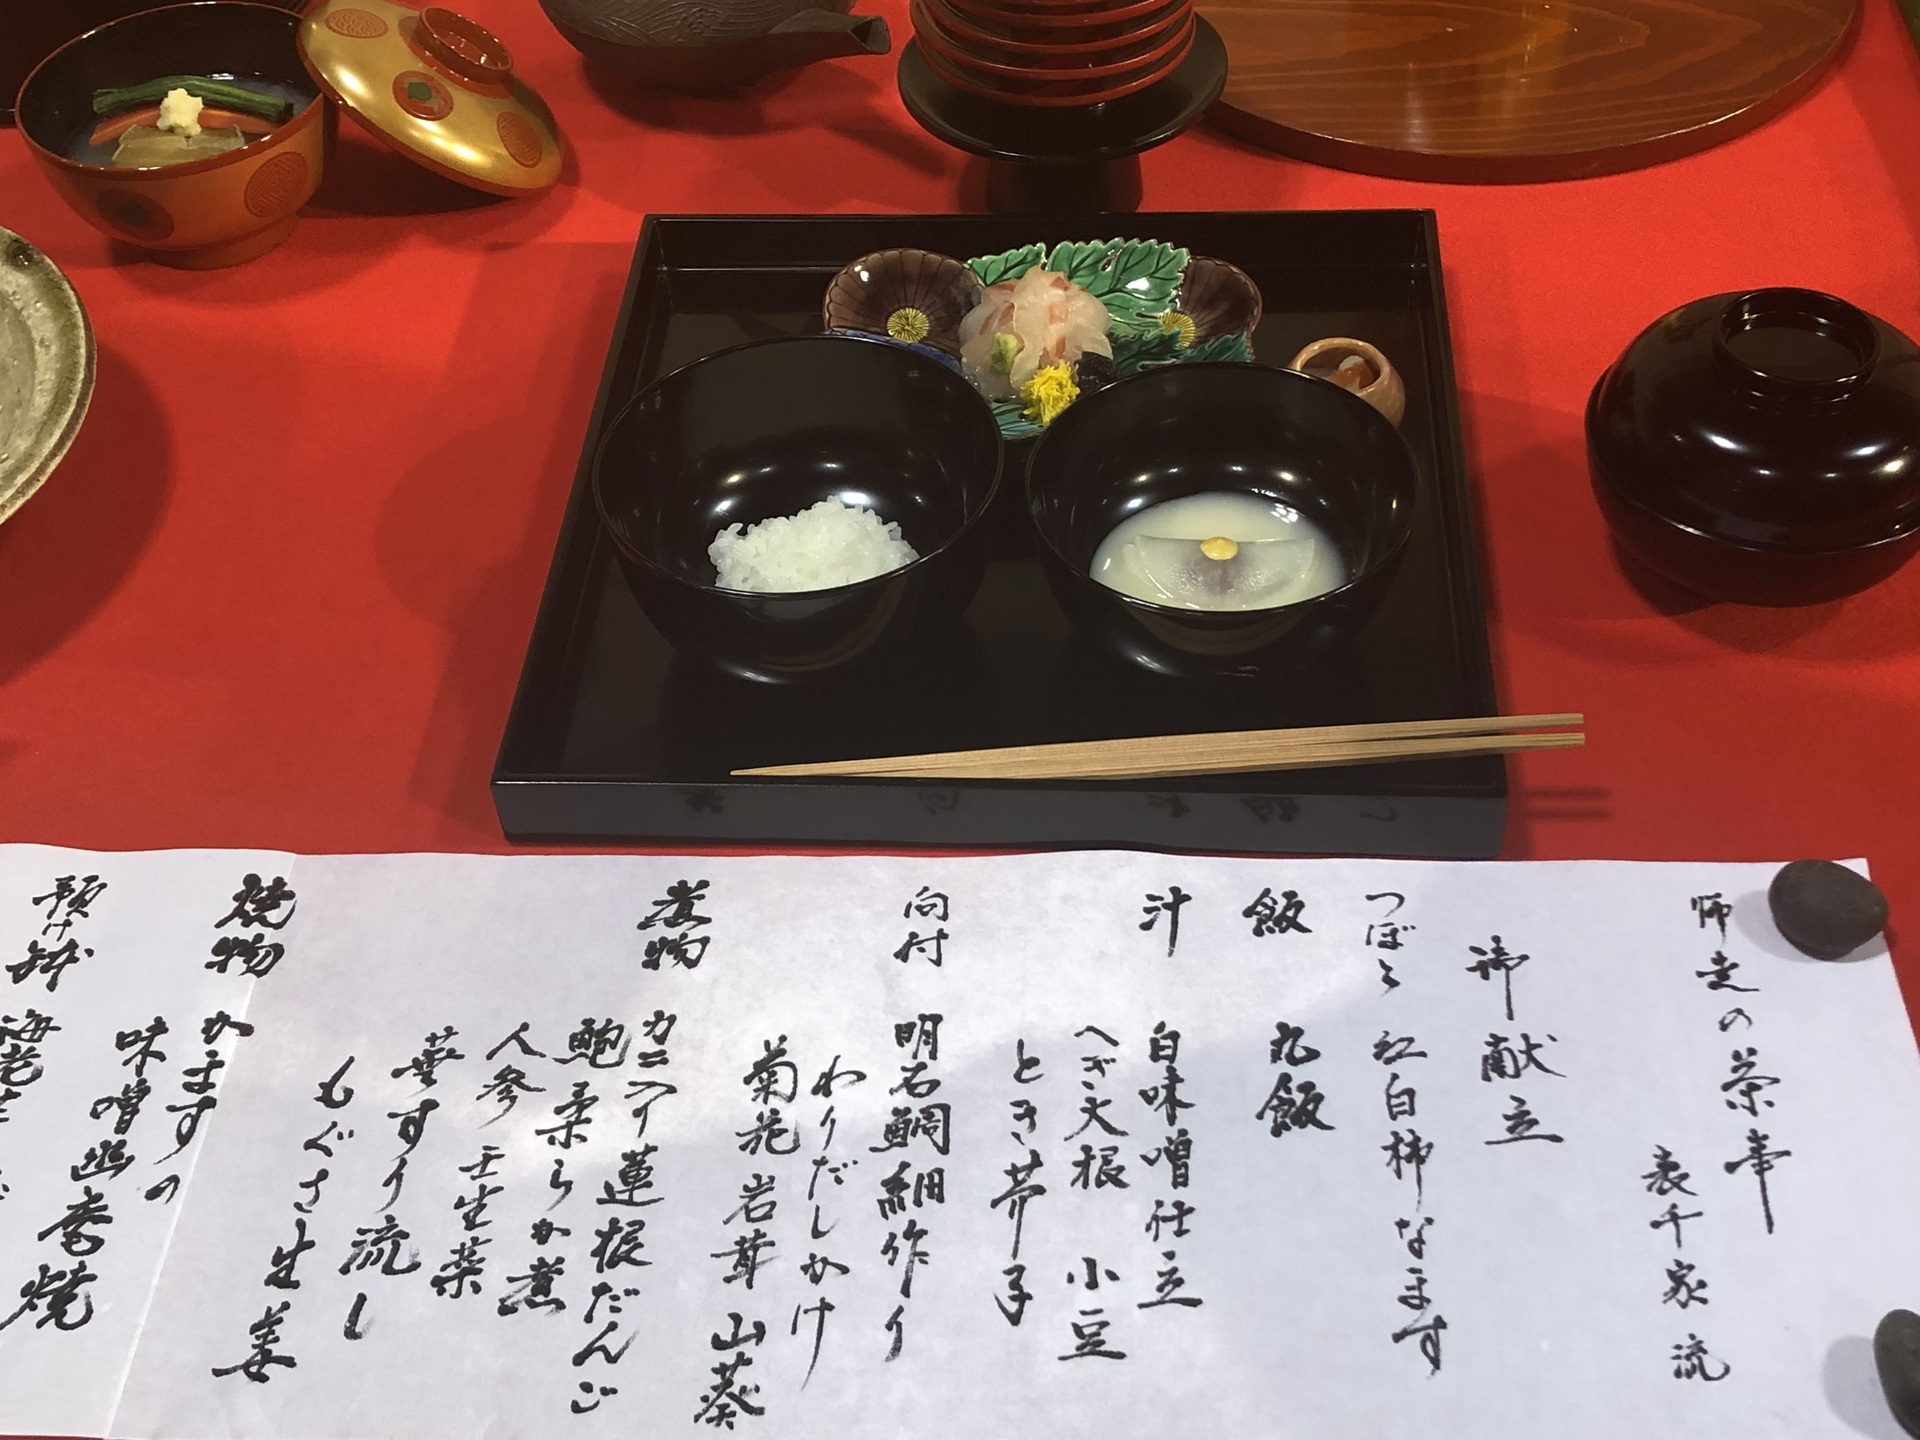 師走の茶事
表千家流
御献立
つぼ々 紅白柿なます
飯 丸飯
汁 白味噌仕立
へぎ大根 小豆
とき芥子
向付 明石鯛細作り
わりだしかけ
菊花 岩茸 山葵
煮物 カニ入り蓮根だんご
鮑柔らか煮
人参 壬生菜
すり流し
もぐさ生姜
焼物 かますの
味噌幽庵焼
預け鉢 海老芋